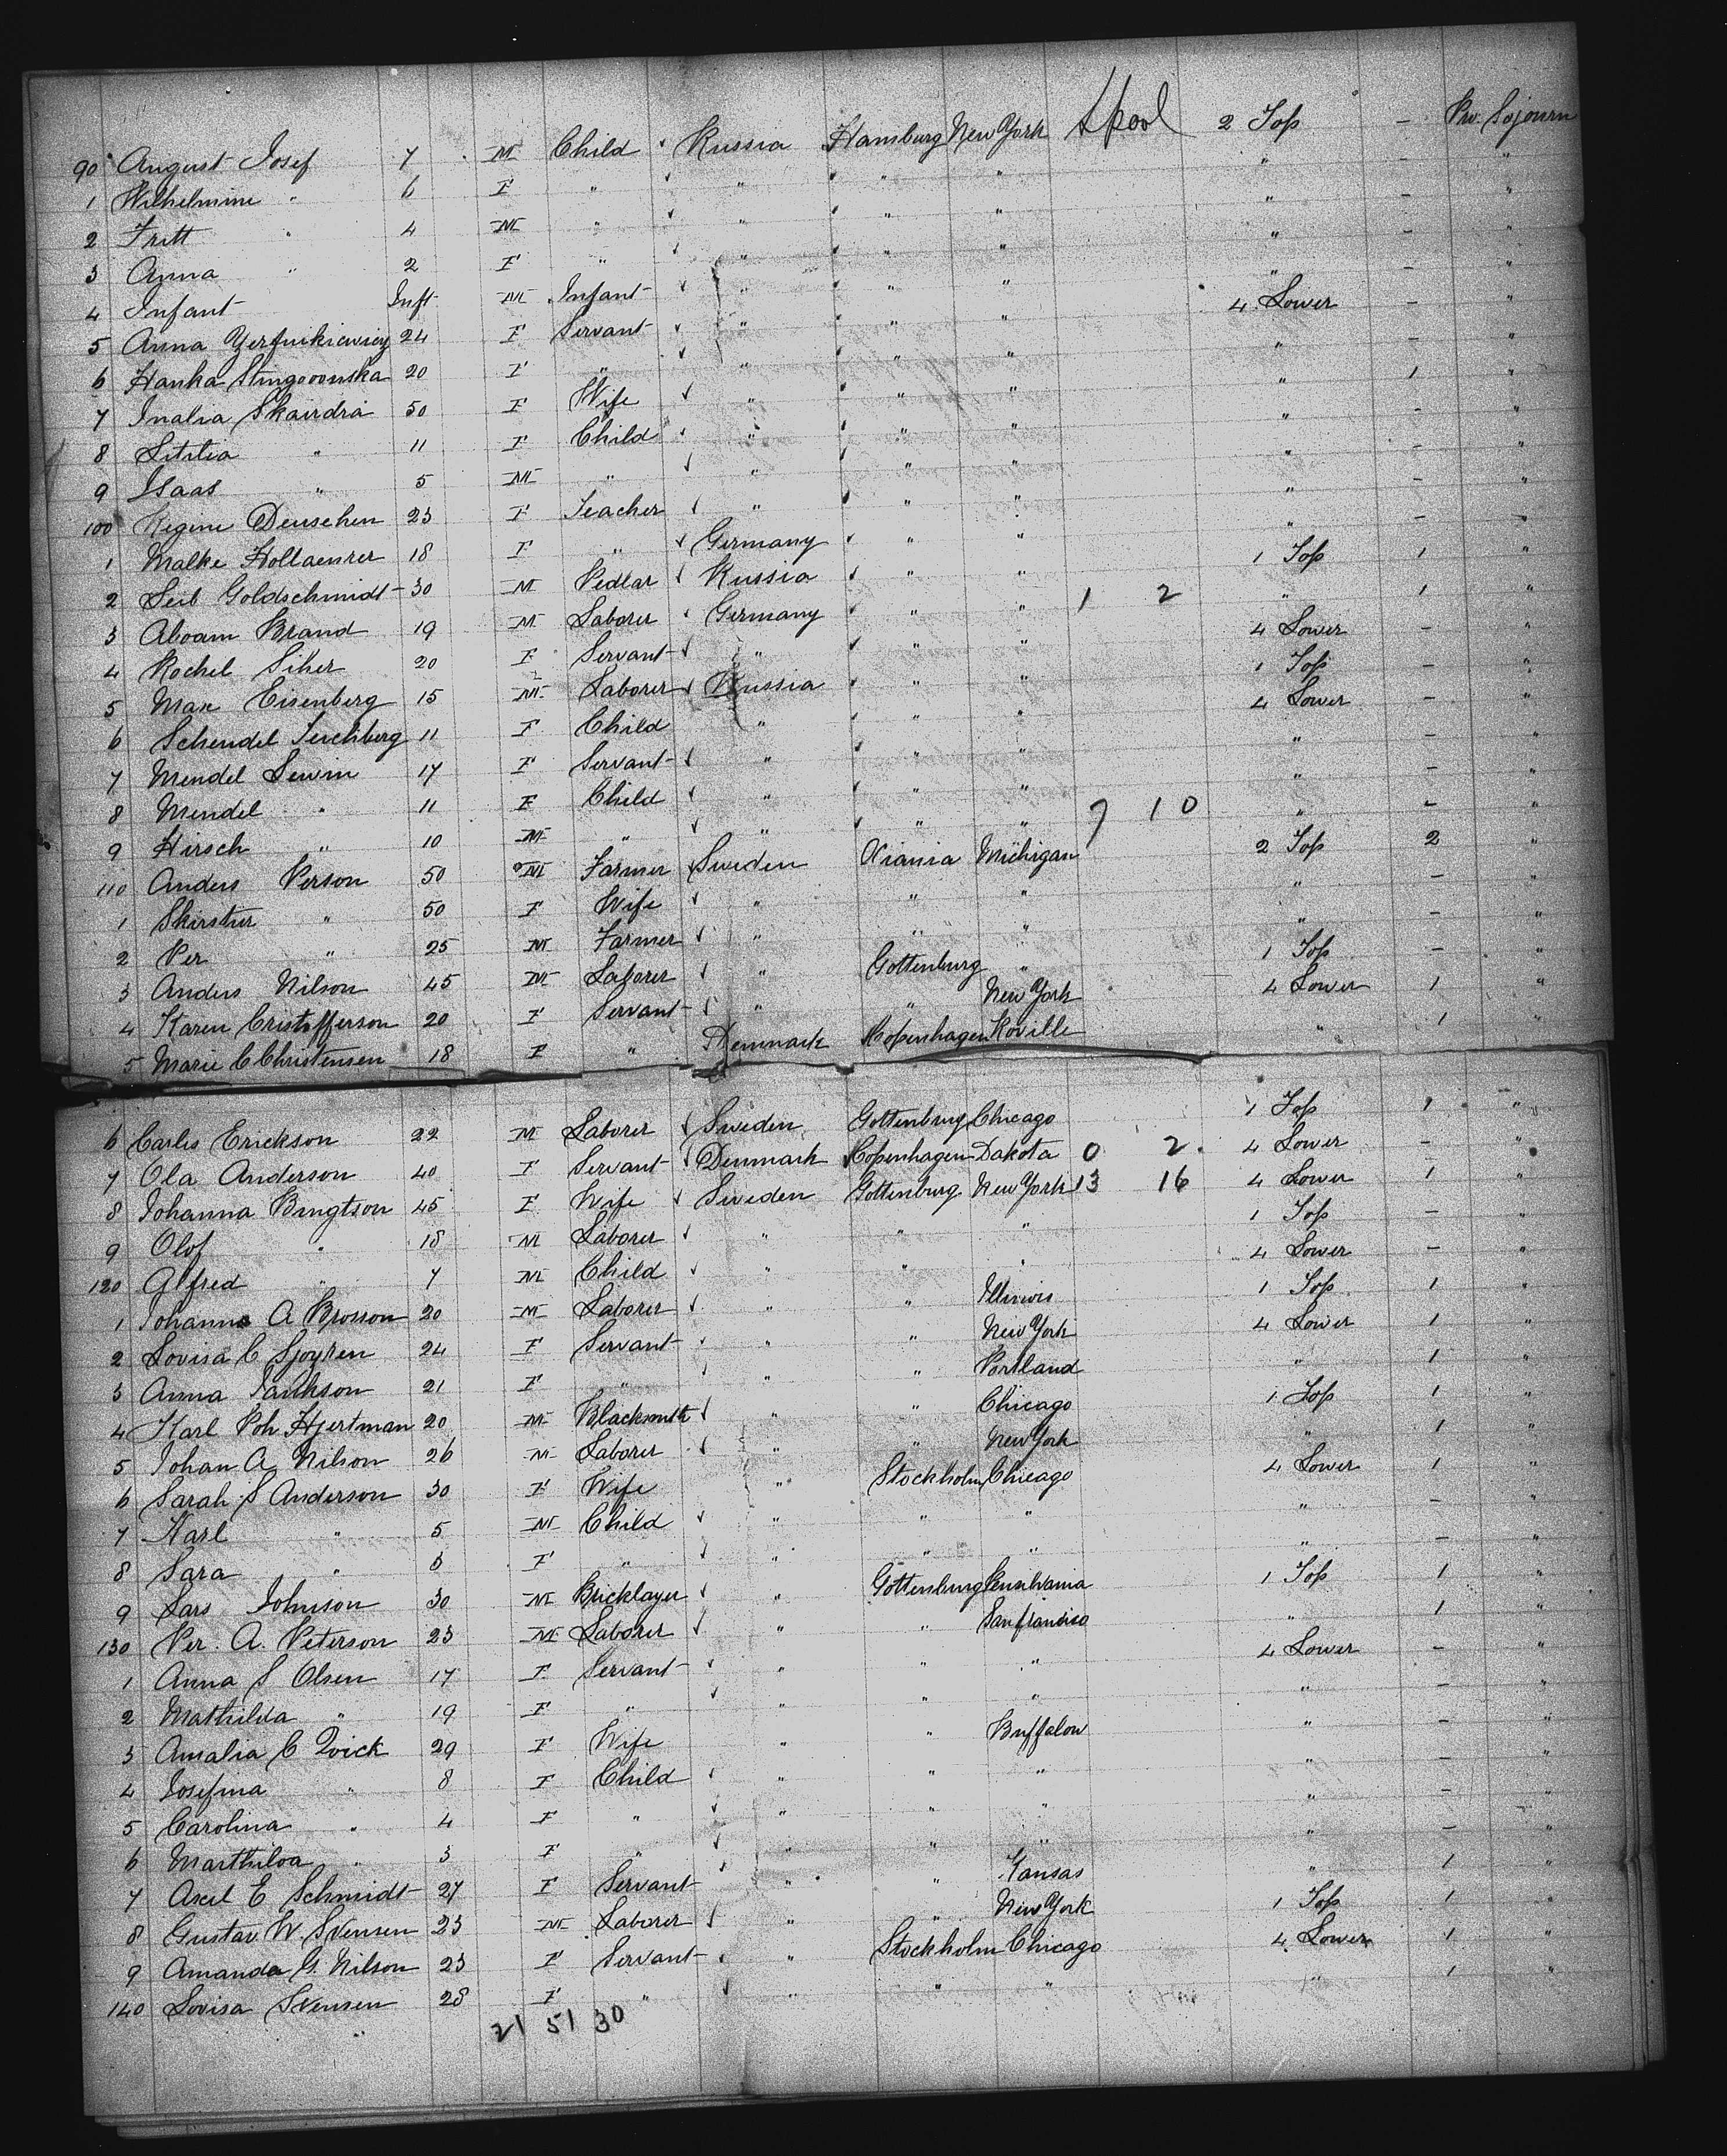 90 August Josef 7 M Child ✓ Russia Hamburg New York Spool 2 Top - Pro. Sojourn
1 Wilhelmine " 6 F " ✓ " ✓ " " " - "
2 Fritt " 4 M " ✓ " ✓ " " " - "
3 Anna " 2 F " ✓ " ✓ " " " - "
4 Infant Inft M Infant ✓ " ✓ " " " - "
5 Anna 24 F Servant ✓ " ✓ " " 4 Lower - "
6 Hanka 20 F " ✓ " ✓ " " " - "
7 Inalia Skairdra 50 F Wife ✓ " ✓ " " " 1 "
8 Litilia " 11 F Child ✓ " ✓ " " " - "
9 Isaas " 5 M " ✓ " ✓ " " " - "
100 Regine Deuschen 23 F Teacher ✓ " ✓ " " " - "
1 Malke Hollaenrer 18 F " ✓ Germany ✓ " " " - "
2 Leib Goldschmidt 30 M Pedlar ✓ Russia ✓ " " 1 Top 1 "
3 Aboam Brand 19 M Laborer ✓ Germany ✓ " " 1 2 " 1 "
4 Rochel Siker 20 F Servant ✓ " ✓ " " 4 Lower - "
5 Max Eisenberg 15 M Laborer ✓ Russia ✓ " " 1 Top - "
6 Schendel 11 F Child " ✓ " " 4 Lower - "
7 Mendel Lewin 17 F Servant ✓ " ✓ " " " - "
8 Mendel " 11 F Child ✓ " ✓ " " " - "
9 Hirsch " 10 M " ✓ " ✓ " " 7 10 " - "
110 Anders Person 50 M Farmer ✓ Sweden Xiania Michigan 2 Top 2 "
1 Skirstur " 50 F Wife ✓ " " " " - "
2 Per " 25 M Farmer ✓ " " " " - "
3 Anders Nilson 45 M Laborer ✓ " Gottenburg " 1 Top - "
4 Karen Cristofferson 20 F Servant ✓ " " New York 4 Lower 1 "
5 Marie C Christensen 18 F " Denmark Kopenhagen Roville " 1 "
6 Carles Erickson 22 M Laborer ✓ Sweden Gottenburg Chicago 1 Top 1 "
7 Ola Anderson 40 F Servant ✓ Denmark Kopenhagen Dakota 0 2. 4 Lower - "
8 Johanna Bengtson 45 F Wife ✓ Sweden Gottenburg New York 13 16 4 Lower 1 "
9 Olof " 18 M Laborer ✓ " " " 1 Top - "
120 Alfred " 7 M Child ✓ " " " 4 Lower - "
1 Johanna A Brosson 20 M Laborer ✓ " " Illinois 1 Top 1 "
2 Lovisa C Sjogren 24 F Servant ✓ " " New York 4 Lower 1 "
3 Anna Jankson 21 F " ✓ " " Portland " 1 "
4 Karl Poh Hjertman 20 M Blacksmith ✓ " " Chicago 1 Top 1 "
5 Johan A Nilson 26 M Laborer ✓ " " New York " 1 "
6 Sarah S Anderson 30 F Wife " Stockholm Chicago 4 Lower 1 "
7 Karl " 5 M Child ✓ " " " " - "
8 Sara " 3 F " ✓ " " " " - "
9 Lars Johnson 30 M Bricklayer ✓ " Gottenburg Pensilvania 1 Top 1 "
130 Per. A. Peterson 23 M Laborer ✓ " " San francisco " 1 "
1 Anna S Olsen 17 F Servant ✓ " " " 4 Lower - "
2 Mathilda " 19 F " ✓ " " " " - "
3 Amalia C Qvick 29 F Wife " " Buffalow " - "
4 Josefina " 8 F Child ✓ " " " " - "
5 Carolina " 4 F " ✓ " " " " - "
6 Marthilda " 3 F " ✓ " " " " - "
7 Axel E Schmidt 27 F Servant ✓ " " Kansas " 1 "
8 Gustav W. Svensen 23 M Laborer ✓ " " New York 1 Top 1 "
9 Amanda G. Nilson 23 F Servant ✓ " Stockholm Chicago 4 Lower 1 "
140 Lovisa Svensen 28 F " ✓ " " " " 1 "
21 51 30